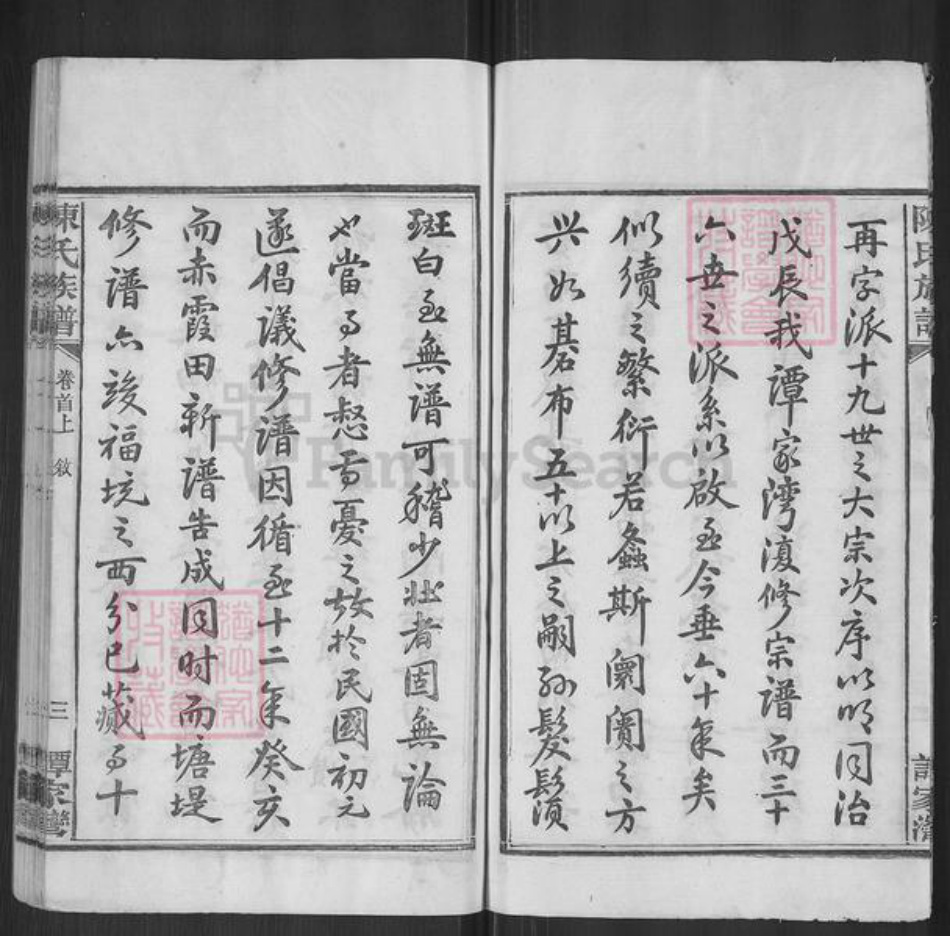 再字派十九世之大宗次序以明同治
戊辰我譚家湾復修宗譜而三十
六世之派系以啟至今垂六十年矣
似續之繁衍若螽斯闤闠之方
兴如棊布五十以上之嗣孙髮鬚
斑白至無譜可稽少壯者固無論
也當事者惄焉憂之故於民國初元
遂倡議修譜因循至十二年癸亥
而赤霞田新譜告成同时而塘堤
修譜亦竣福坑之西分已蕆事十
陳氏族譜
卷首上
敘
三
譚家灣
FamilySearch